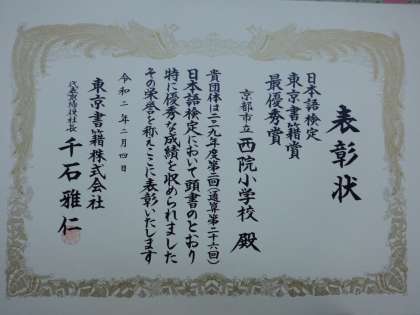 表彰状
日本語検定
東京書籍賞
最優秀賞
京都市立 西院小学校 殿
貴団体は二〇一九年度第二回(通算第二十六回)
日本語検定において頭書のとおり
特に優秀な成績を収められました
その栄誉を称えここに表彰いたします
令和二年二月四日
東京書籍株式会社
代表取締役社長 千石雅仁